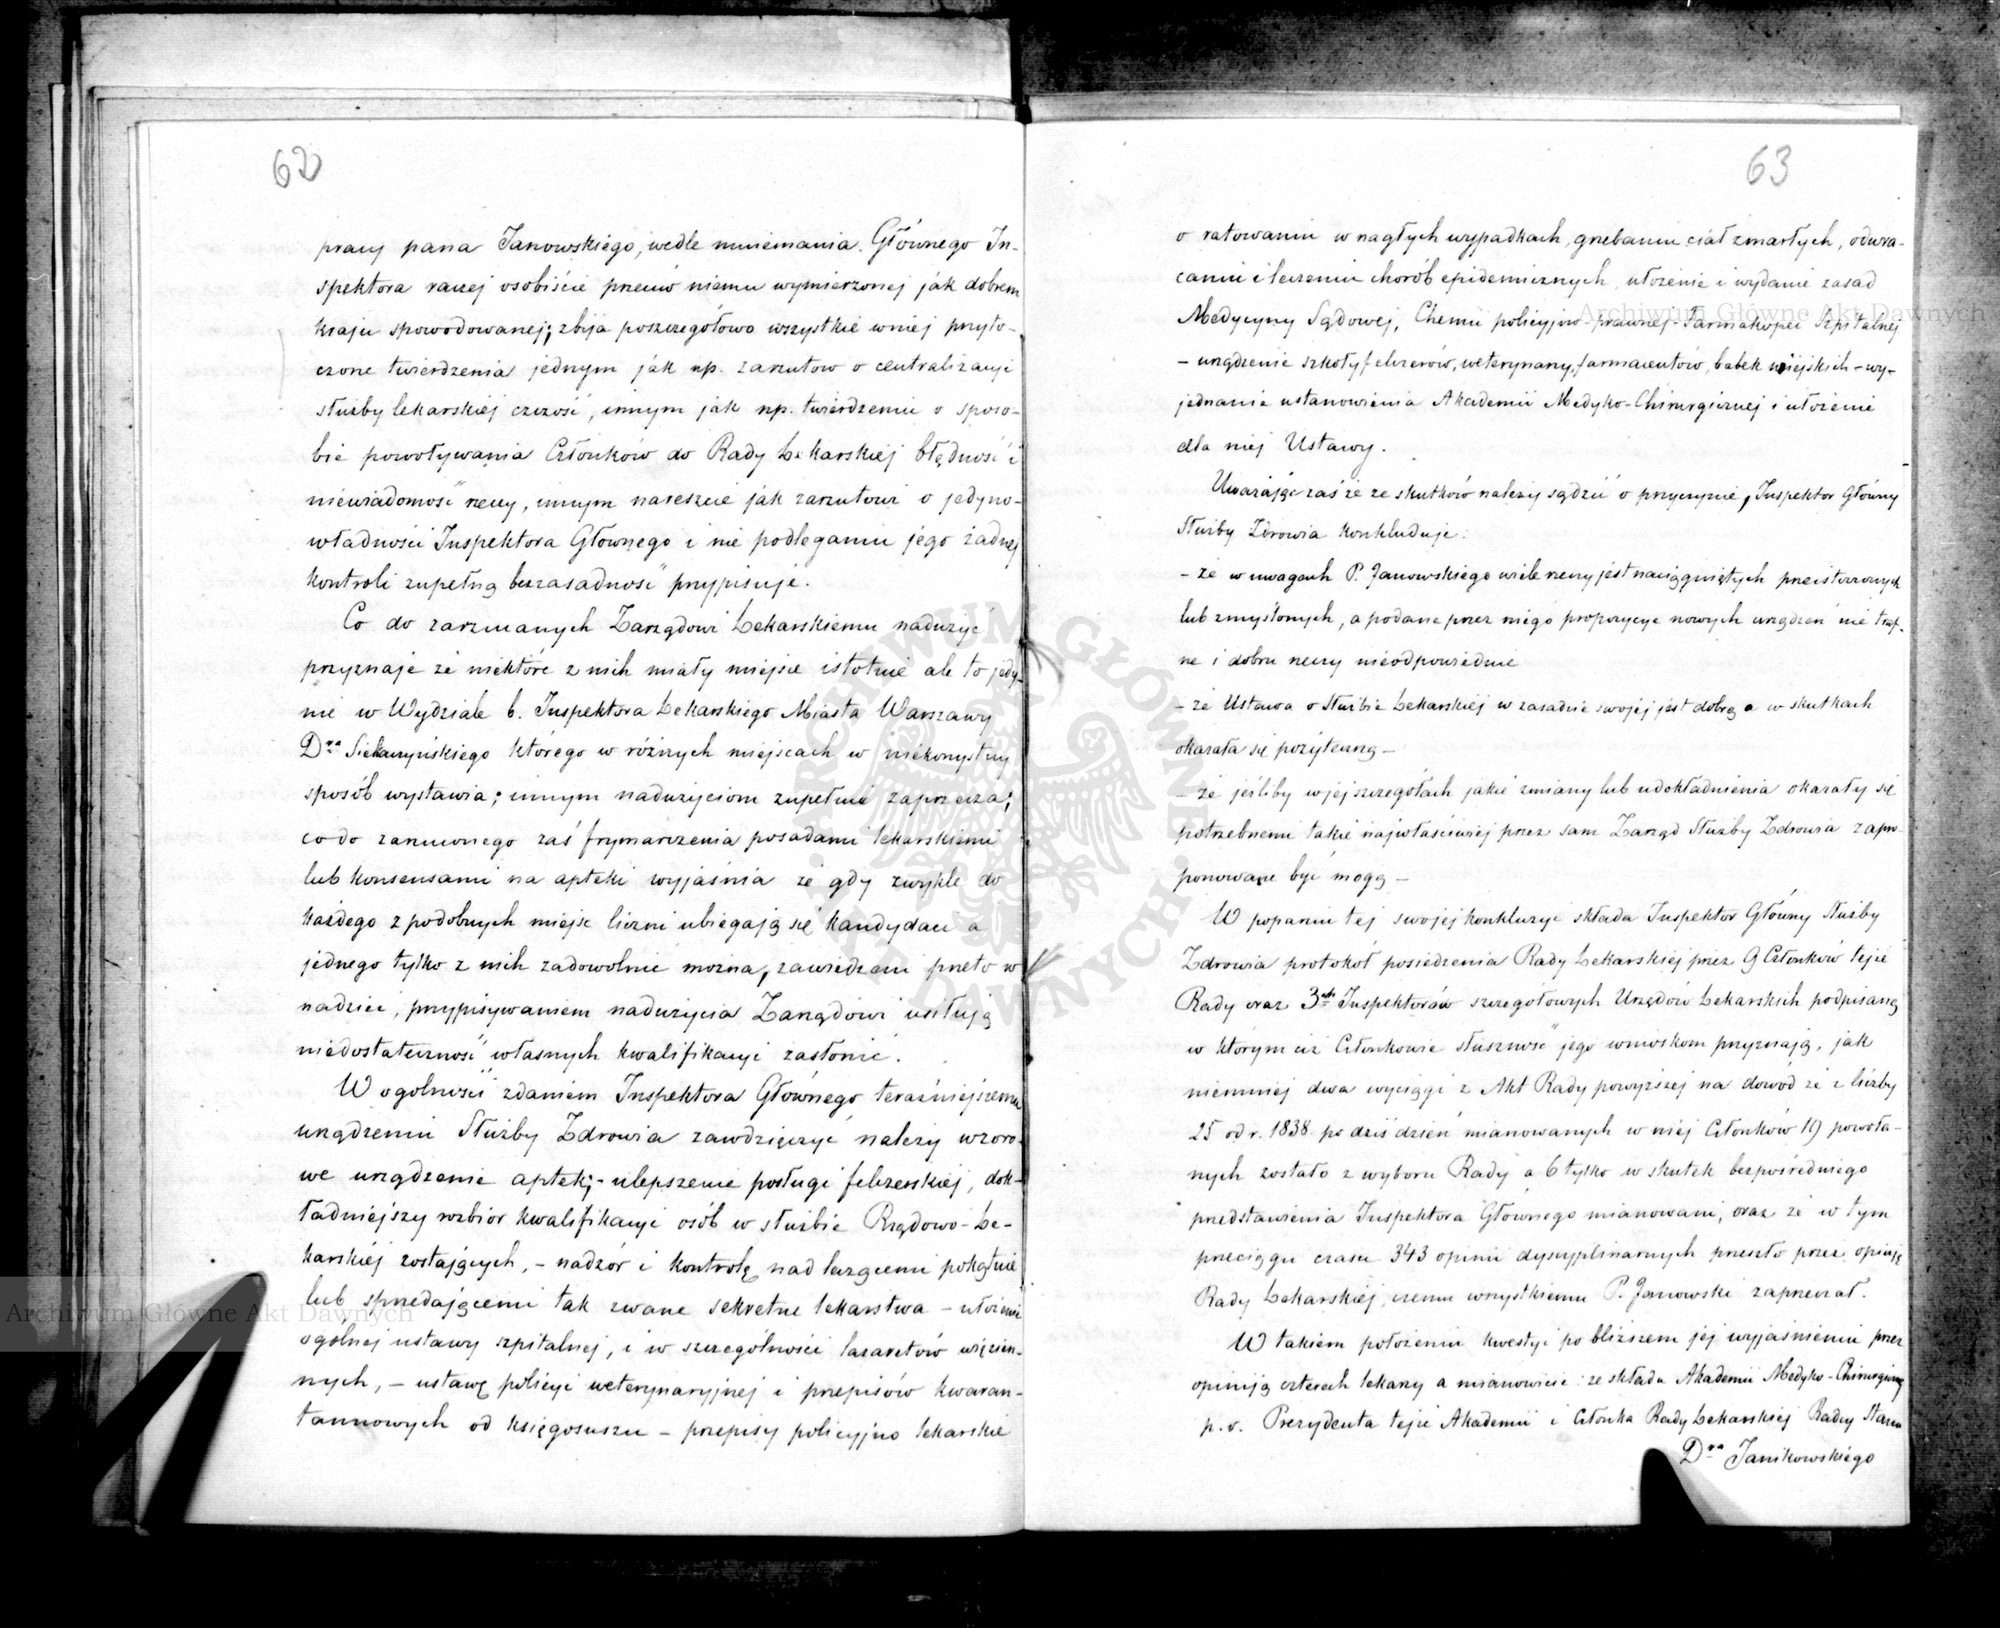 62
pracy pana Janowskiego, wedle mniemania Głównego In-
spektora raczej osobiście przeciw niemu wymierzonej jak dobrem
kraju spowodowanej; zbija poszczegółowo wszystkie w niej przyto-
czone twierdzenia jednym jak np. zarzutow o centralizacyi
służby lekarskiej czczość, innym jak np. twierdzeniu o sposo-
bie powoływania Członków do Rady Lekarskiej błędność i
niewiadomość rzeczy, innym nareszcie jak zarzutowi o jedyno-
władności Inspektora Głownego i nie podleganiu jego żadnej
kontroli zupełną bezzasadność przypisuje.
Co do zarzucanych Zarządowi Lekarskiemu nadużyć
przyznaje że niektóre z nich miały miejsce istotnie ale to jedy-
nie w Wydziale b. Inspektora Lekarskiego Miasta Warszawy
Dra Siekaczyńskiego którego w różnych miejscach w niekorzystny
sposób wystawia; innym nadużyciom zupełnie zaprzecza;
co do zarzuconego zaś frymarczenia posadami lekarskiemi
lub konsensami na apteki wyjaśnia że gdy zwykle do
każdego z podobnych miejsc liczni ubiegają się kandydaci a
jednego tylko z nich zadowolnić można, zawiedzeni przeto w
nadziei, przypisywaniem nadużycia Zarządowi usiłują
niedostateczność własnych kwalifikacyi zasłonić.
W ogolności zdaniem Inspektora Głównego teraźniejszemu
urządzeniu Służby Zdrowia zawdzięczyć należy wzoro-
we urządzenie aptek; - ulepszenie posługi felczerskiej, dok-
ładniejszy rozbiór kwalifikacyi osób w służbie Rządowo-Le-
karskiej zostających, - nadzór i kontrolę nad leczącemi pokątnie
lub sprzedającemi tak zwane sekretne lekarstwa - ułożenie
ogólnej ustawy szpitalnej, i w szczególności lazaretów więzien-
nych, - ustawę policyi weterynaryjnej i przepisów kwaran-
tannowych od księgosuszu - przepisy policyjno lekarskie
63
o ratowaniu w nagłych wypadkach, grzebaniu ciał zmarłych, odwra-
caniu i leczeniu chorób epidemicznych, ułożenie i wydanie zasad
Medycyny Sądowej, Chemii policyjno-prawnej - Farmakopei Szpitalnej
- urządzenie szkoły felczerów, weterynarzy, farmaceutów, babek wiejskich - wy-
jednanie ustanowienia Akademii Medyko-Chirurgicznej i ułożenie
dla niej Ustawy.
Uważając zaś że ze skutków należy sądzić o przyczynie, Inspektor Główny
Służby Zdrowia konkluduje:
- że w uwagach P. Janowskiego wiele rzeczy jest naciągniętych przeistoczonych
lub zmyślonych, a podane przez niego propozycye nowych urządzeń nie traf-
ne i dobru rzeczy nieodpowiednie
- że Ustawa o Służbie Lekarskiej w zasadzie swojej jest dobrą a w skutkach
okazała się pożyteczną -
- że jeśliby w jej szczegółach jakie zmiany lub udokładnienia okazały się
potrzebnemi takie najwłaściwiej przez sam Zarząd Służby Zdrowia zapro-
ponowane być mogą -
W poparciu tej swojej konkluzyi składa Inspektor Główny Służby
Zdrowia protokół posiedzenia Rady Lekarskiej przez 9 Członków tejże
Rady oraz 3ch Inspektorów szczegołowych Urzędów Lekarskich podpisany
w którym ciż Członkowie słuszność jego wnioskom przyznają, jak
niemniej dwa wyciągi z Akt Rady powyższej na dowód że z liczby
25 od r. 1838 po dziś dzień mianowanych w niej Członków 19 powoła-
nych zostało z wyboru Rady a 6 tylko w skutek bezpośredniego
przedstawienia Inspektora Głównego mianowani, oraz że w tym
przeciągu czasu 343 opinii dyscyplinarnych przeszło przez opinię
Rady Lekarskiej, czemu wszystkiemu P. Janowski zaprzeczał.
W takiem położeniu kwestyi po bliższem jej wyjaśnieniu przez
opiniją czterech lekarzy a mianowicie: ze składu Akademii Medyko-Chirurgicznej
p.o. Prezydenta tejże Akademii i Członka Rady Lekarskiej Radcy Stanu
Dra Janikowskiego
Archiwum Główne Akt Dawnych
Archiwum Główne Akt Dawnych
ARCHIWUM GŁÓWNE AKT DAWNYCH